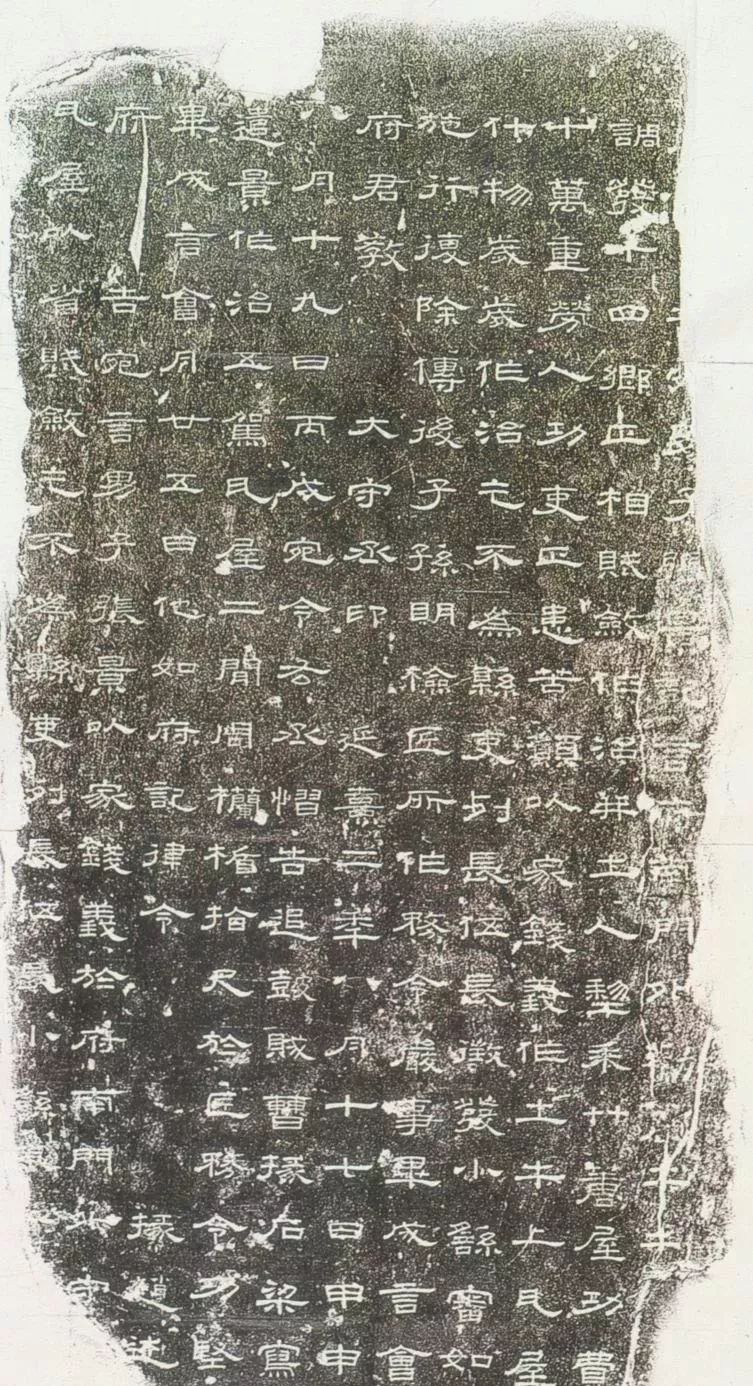 府南門外
調發十四鄉正相賦斂作治并土人犂耒艸蓎屋功費
十萬重勞人功吏正患苦願以家錢義作土牛上瓦屋
什物歲歲作治乞不為縣吏列長伍長徵發小繇審如
施行復除傳後子孫明檢匠所作務令嚴事畢成言會
府君教 大守丞印 延熹二年八月十七日甲申
八月十九日丙戌宛令右丞慴告追鼓賊曹掾石梁寫
遣景作治五駕瓦屋二間周欄楯拾尺於匠務令功堅
畢成言會月廿五日他如府記律令 掾趙述
府 告宛言男子張景以家錢義於府南門外守
瓦屋以省賦斂乞不為縣吏列長伍長小繇